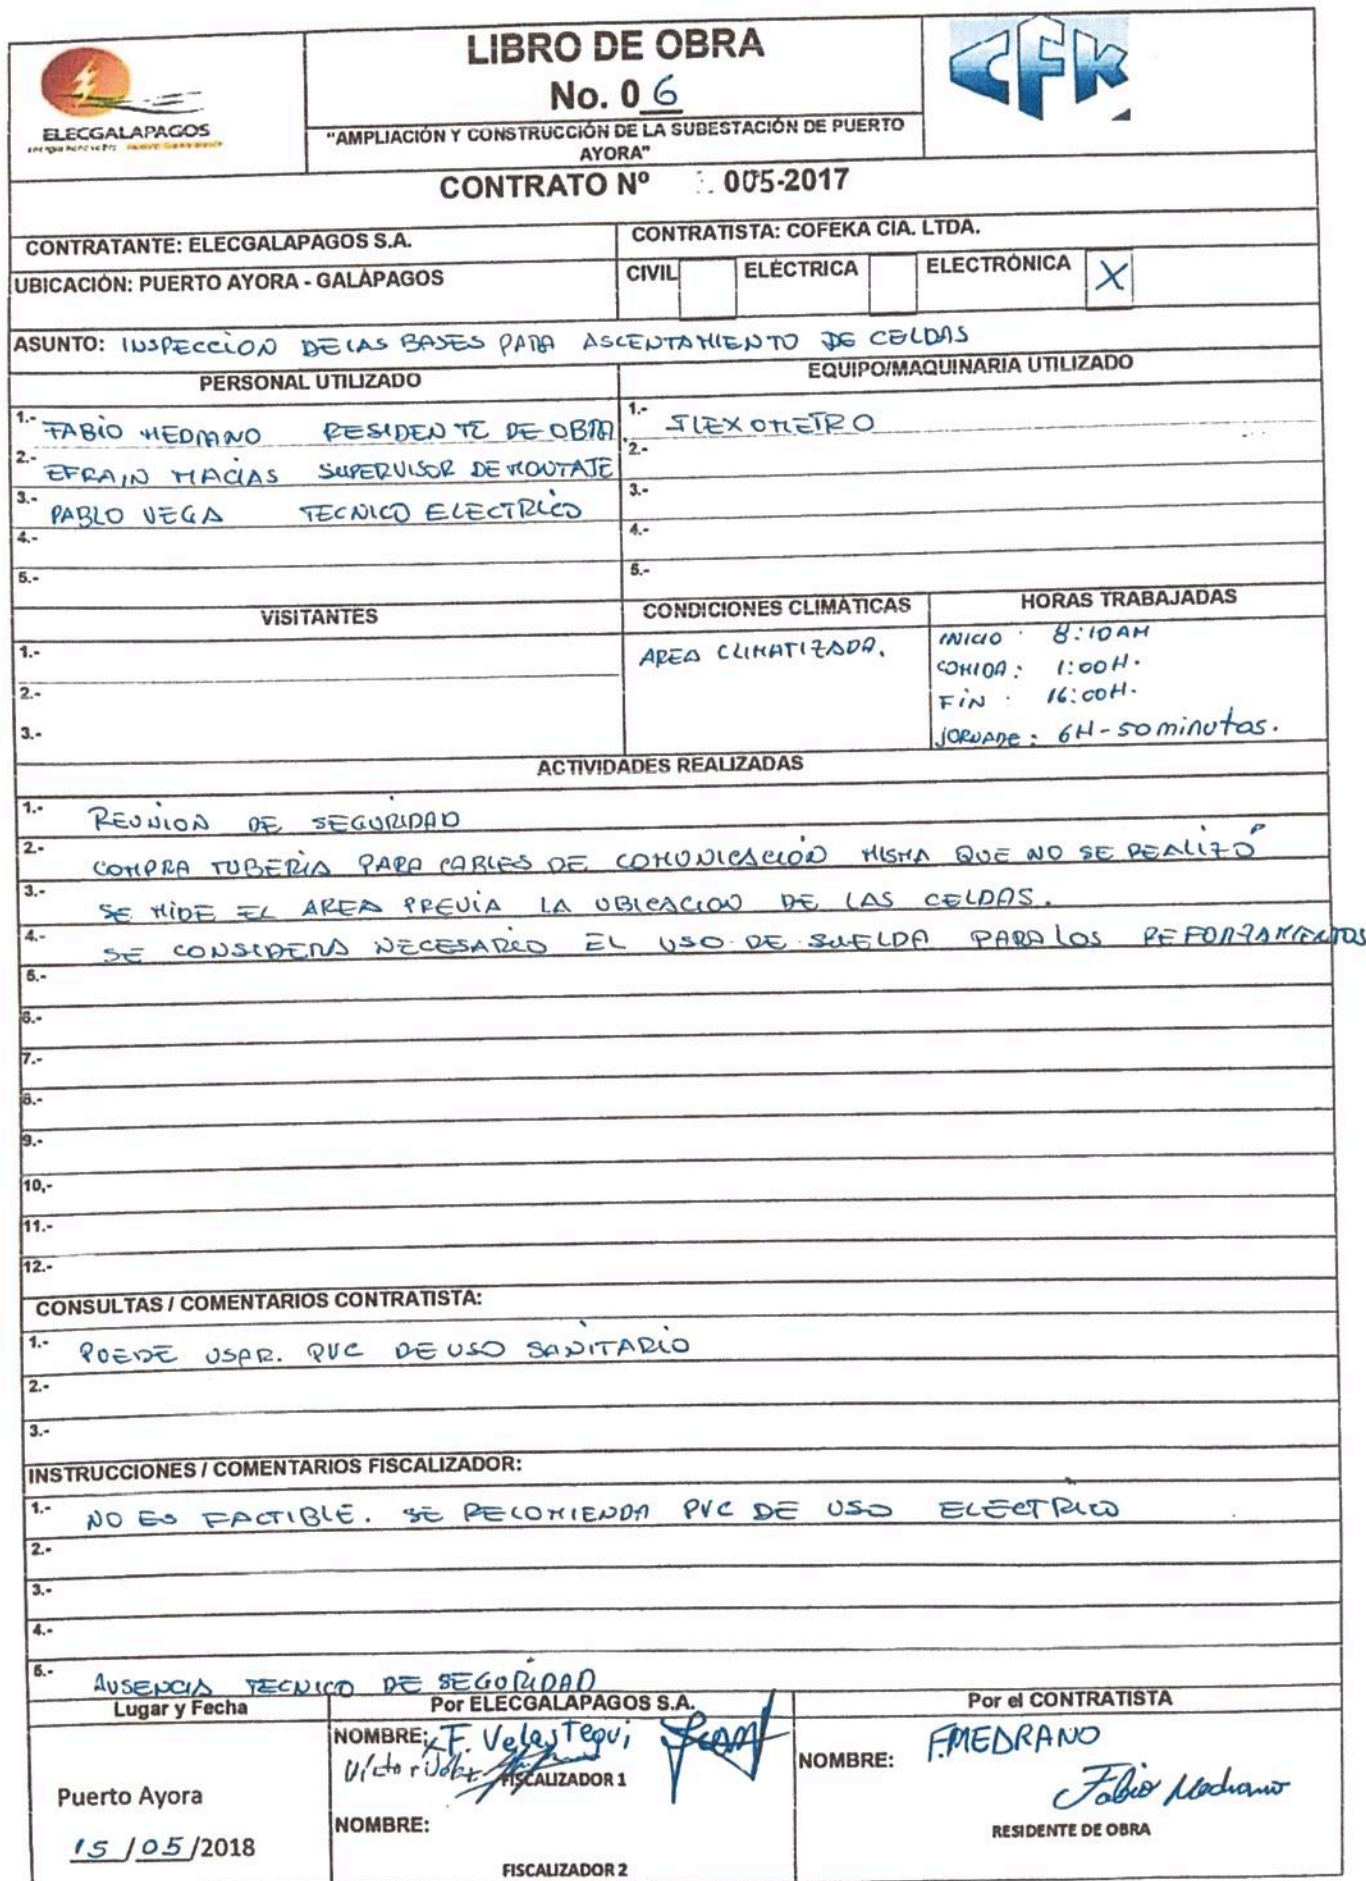 ELECGALAPAGOS
LIBRO DE OBRA
No. 0 6
"AMPLIACIÓN Y CONSTRUCCIÓN DE LA SUBESTACIÓN DE PUERTO
AYORA"
CFK
CONTRATO Nº 005-2017
CONTRATANTE: ELECGALAPAGOS S.A.
CONTRATISTA: COFEKA CIA. LTDA.
UBICACIÓN: PUERTO AYORA - GALÁPAGOS
CIVIL ELÉCTRICA ELECTRÓNICA X
ASUNTO: INSPECCION DE LAS BASES PARA ASCENTAMIENTO DE CELDAS
PERSONAL UTILIZADO
EQUIPO/MAQUINARIA UTILIZADO
1.- FABIO MEDRANO RESIDENTE DE OBRA
1.- FLEXOMETRO
2.- EFRAIN MACIAS SUPERVISOR DE MONTAJE
2.-
3.- PABLO VEGA TECNICO ELECTRICO
3.-
4.-
4.-
5.-
5.-
VISITANTES
CONDICIONES CLIMÁTICAS
HORAS TRABAJADAS
1.-
2.-
3.-
AREA CLIMATIZADA.
INICIO : 8:10AM
COMIDA : 1:00H.
FIN : 16:00H.
JORNADE : 6H - 50 minutos.
ACTIVIDADES REALIZADAS
1.- REUNION DE SEGURIDAD
2.- COMPRA TUBERIA PARA CABLES DE COMUNICACION MISMA QUE NO SE REALIZO
3.- SE MIDE EL AREA PREVIA LA UBICACION DE LAS CELDAS.
4.- SE CONSIDERA NECESARIO EL USO DE SUELDA PARA LOS REFORZAMIENTOS
5.-
6.-
7.-
8.-
9.-
10,-
11.-
12.-
CONSULTAS / COMENTARIOS CONTRATISTA:
1.- PUEDE USAR. PVC DE USO SANITARIO
2.-
3.-
INSTRUCCIONES / COMENTARIOS FISCALIZADOR:
1.- NO ES FACTIBLE. SE RECOMIENDA PVC DE USO ELECTRICO
2.-
3.-
4.-
5.- AUSENCIA TECNICO DE SEGURIDAD
Lugar y Fecha
Por ELECGALAPAGOS S.A.
Por el CONTRATISTA
NOMBRE: F. Velastegui
FISCALIZADOR 1
NOMBRE:
FISCALIZADOR 2
Puerto Ayora
15 / 05 /2018
NOMBRE: F.MEDRANO
Fabio Medrano
RESIDENTE DE OBRA